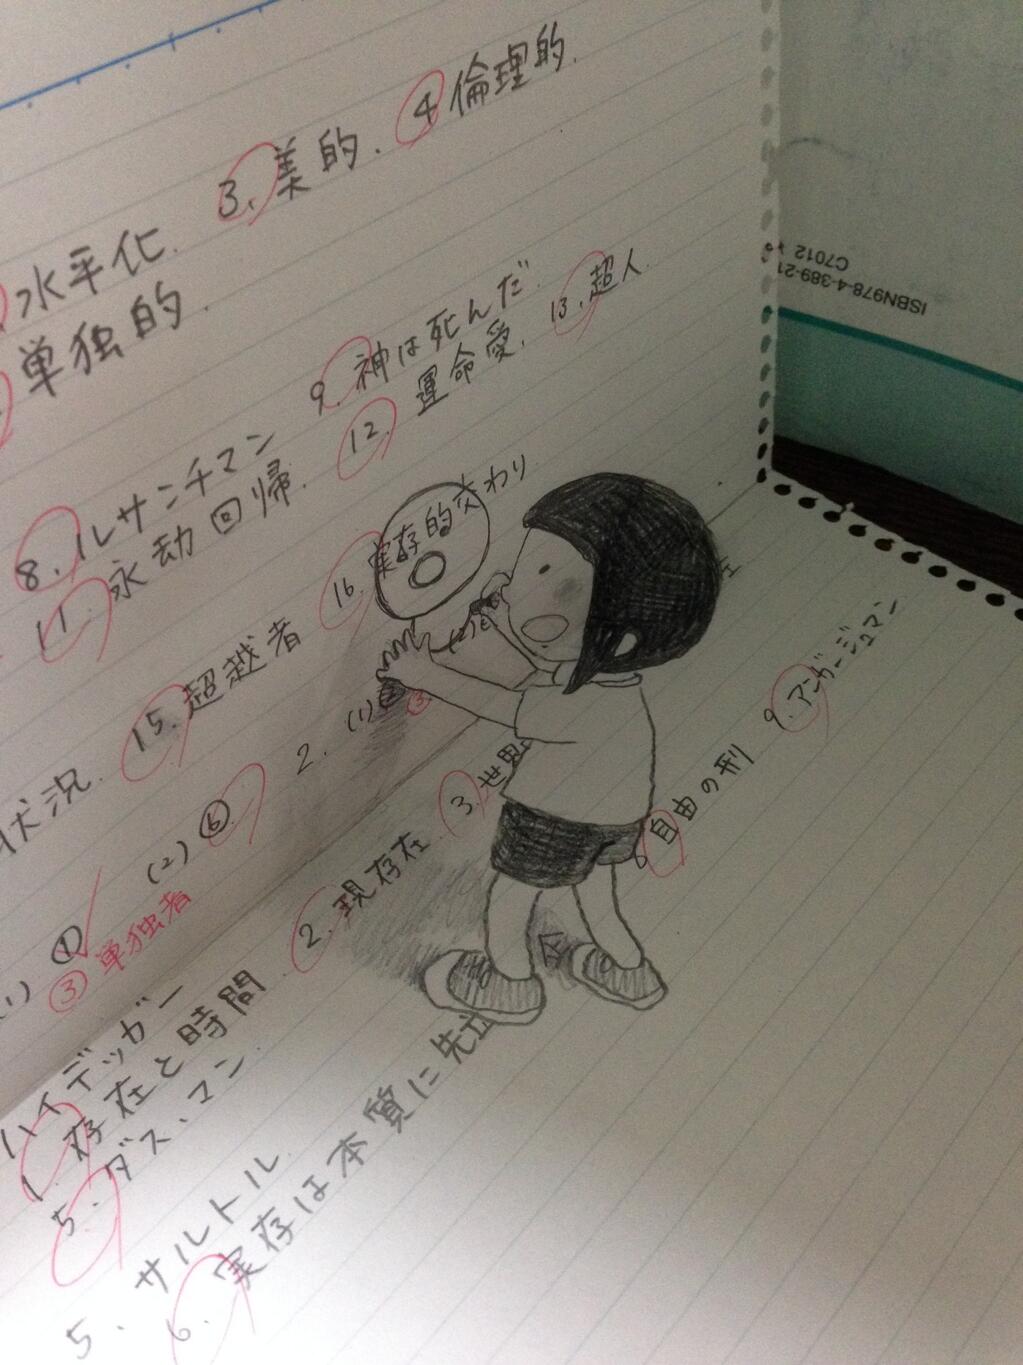 3. 美的. 4 倫理的.
水平化.
単独的.
8. ルサンチマン 9. 神は死んだ.
11. 永劫回帰. 12. 運命愛. 13. 超人
状況. 15. 超越者 16. 実存的交わり
(1) ① (2) ⑥ 2. (1)
③ 単独者 ③
ハイデッガー
1. 存在と時間. 2. 現存在. 3. 世界
5. ダス・マン.
5. サルトル
6. 実存は本質に先立
8 自由の刑 9. アンガージュマン
ISBN978-4-389-21
C7012